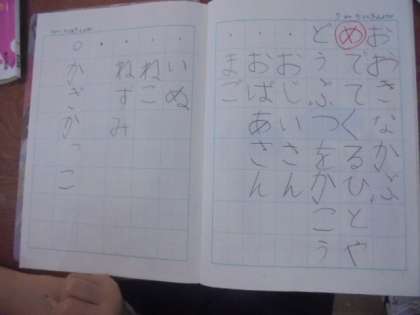 おおきなかぶ
めでてくるひとや
どうぶつをかこう
・おじいさん
・おばあさん
・まご
・いぬ
・ねこ
・ねずみ
・
○かぎかっこ